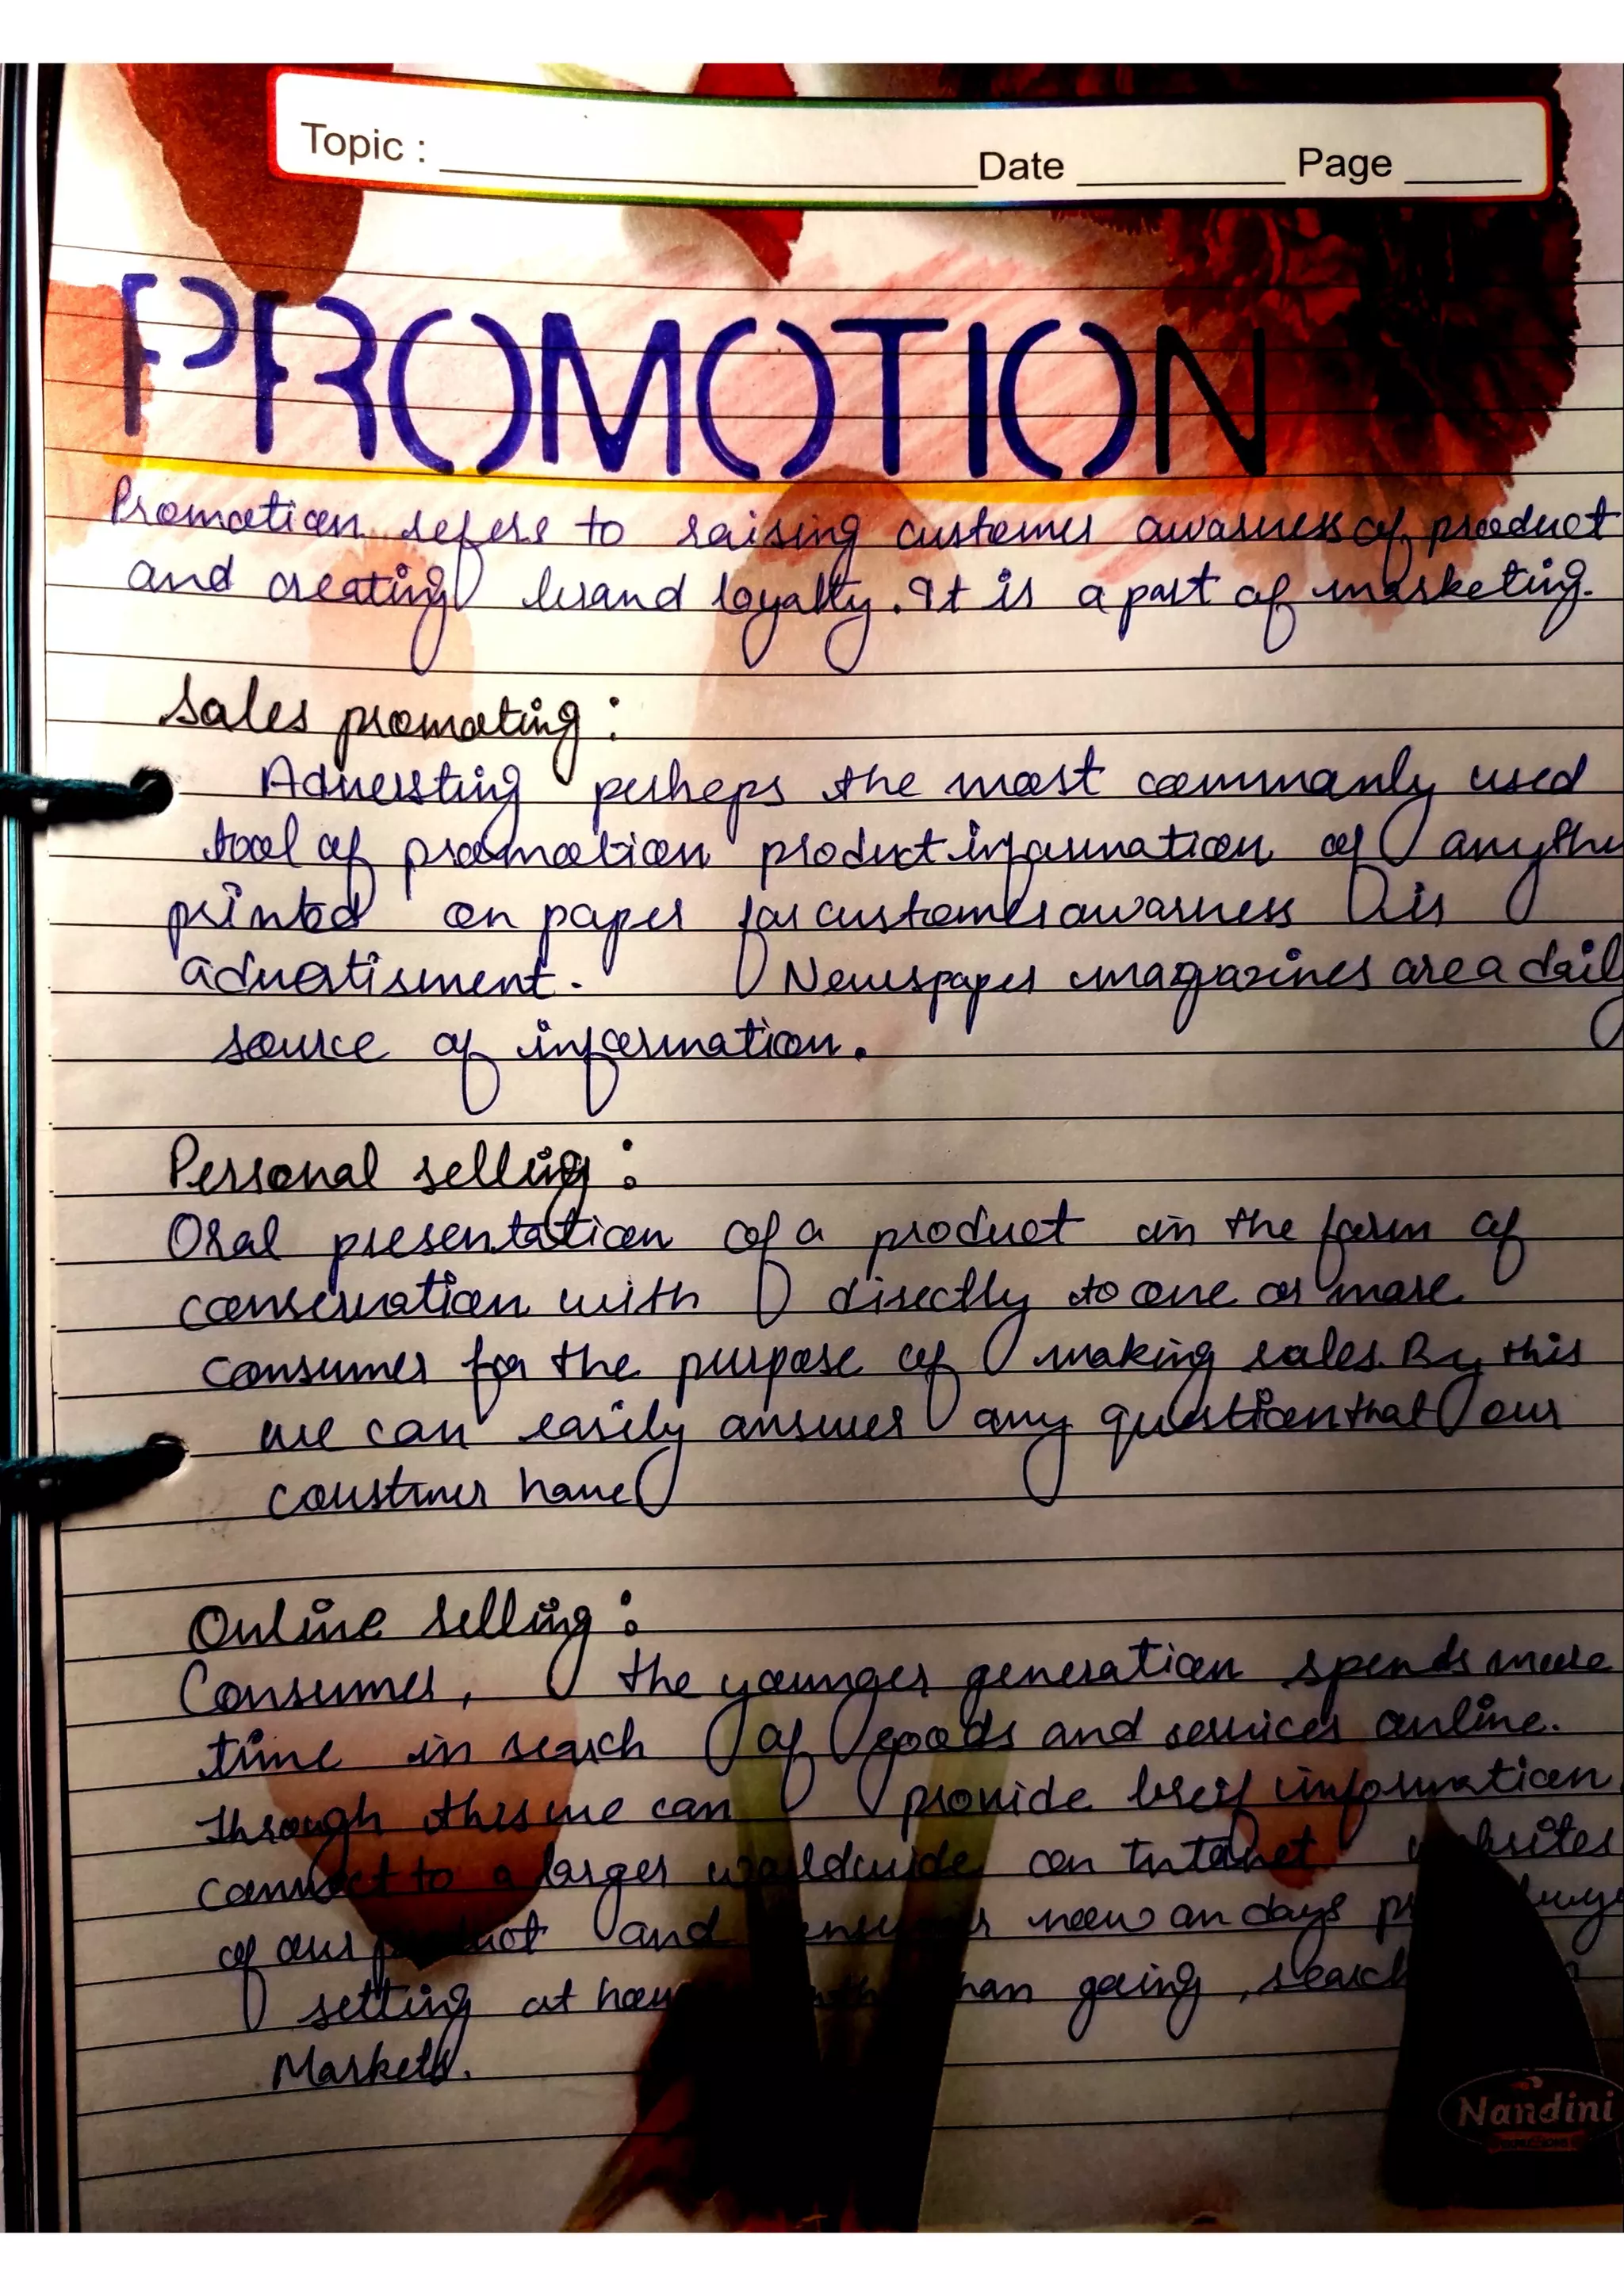 Topic :
Date Page
PROMOTION
Promotion refers to raising customer awarness of product
and creating brand loyalty. It is a part of marketing.
Sales promoting :
Adversting perheps the most commonly used
tool of promotion product information of
printed on paper for customer awarness is
advertisment. Newspaper magazines are a
source of information.
Personal selling :
Oral presentation of a product in the form of
conservation with directly to one or more
consumer for the purpose of making sales. By this
we can easily answer any question that our
coustmer have
Online selling :
Consumer, the younger generation spends more
time in search of goods and services online.
Through this we can provide breif information
connect to a larger worldwide on Intenet
of our and now an days
setting at going , search
Markets.
Nandini